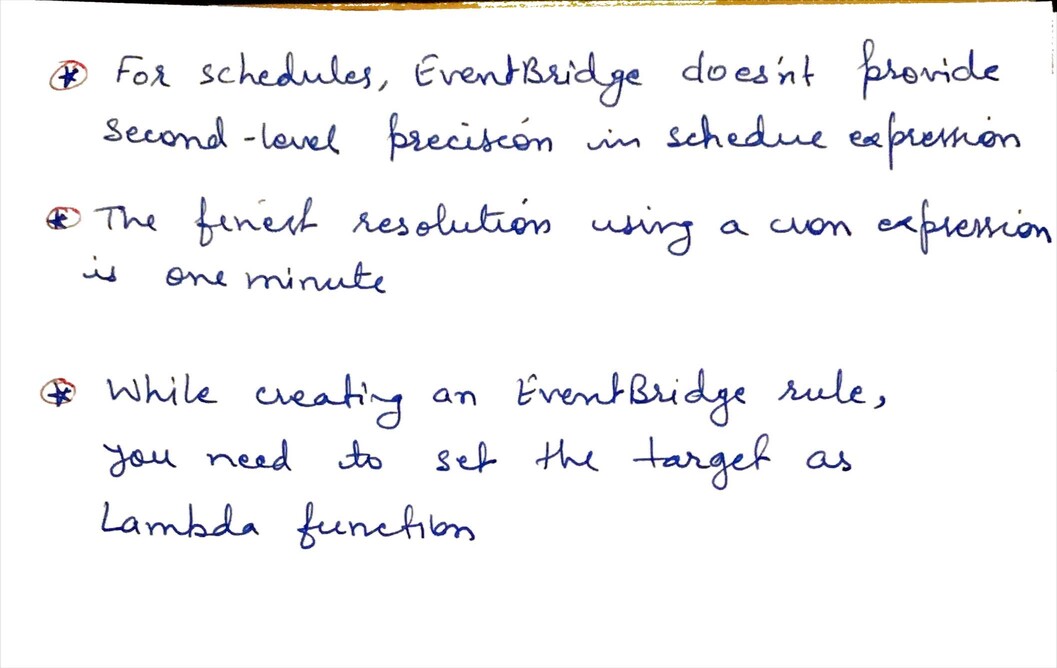 * For schedules, EventBridge does'nt provide
second-level precision in schedue expression
* The finest resolution using a cron expression
is one minute
* While creating an EventBridge rule,
you need to set the target as
Lambda function